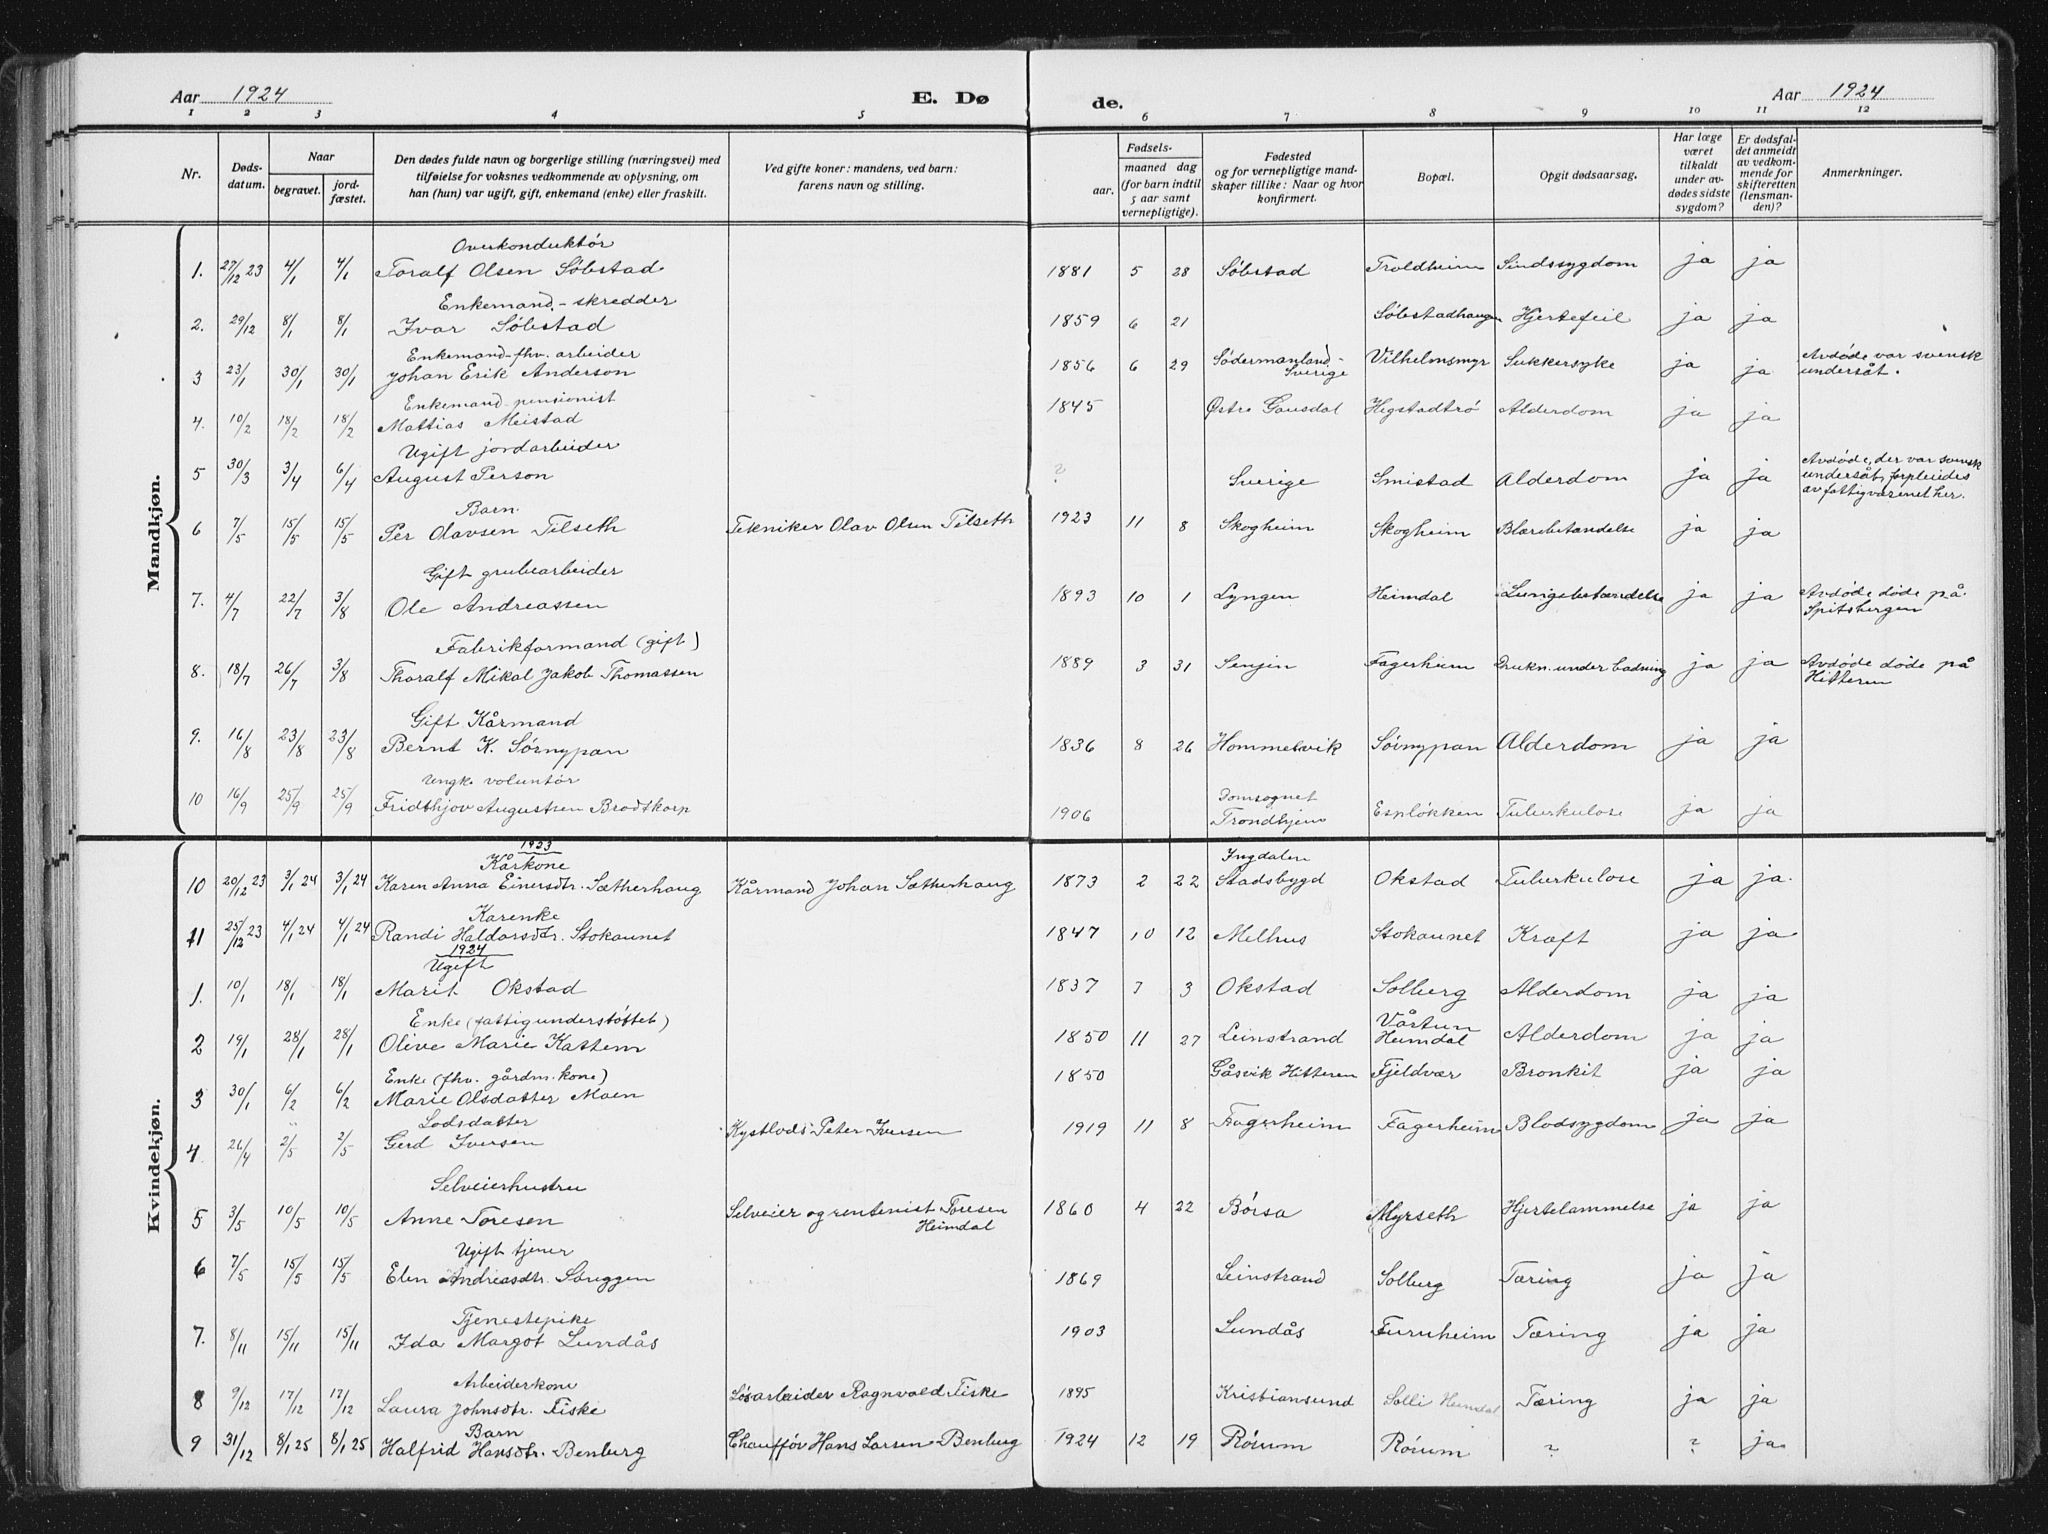 Aar 1924 E. Dø de. Aar 1924
1 2 3 4 5 6 7 8 9 10 11 12
Nr.
Døds-
datum.
Naar
begravet.
jord-
fæstet.
Den dødes fulde navn og borgerlige stilling (næringsvei) med
tilføielse for voksnes vedkommende av oplysning, om
han (hun) var ugift, gift, enkemand (enke) eller fraskilt.
Ved gifte koner: mandens, ved barn:
farens navn og stilling.
Fødsels-
aar.
maaned dag
(for barn indtil
5 aar samt
vernepligtige).
Fødested
og for vernepligtige mand-
skaper tillike: Naar og hvor
konfirmert.
Bopæl.
Opgit dødsaarsag.
Har læge
været
tilkaldt
under av-
dødes sidste
sygdom?
Er dødsfal-
det anmeldt
av vedkom-
mende for
skifteretten
(lensman-
den)?
Anmerkninger.
Mandkjøn.
Overkonduktör
1. 27/12 23 4/1 4/1 Toralf Olsen Söbstad 1881 5 28 Söbstad Troldheim Sindssygdom ja ja
Enkemand - skredder
2. 29/12 8/1 8/1 Ivar Söbstad 1859 6 21 Söbstadhaugen Hjertefeil ja ja
Enkemand - fhv. arbeider
3 23/1 30/1 30/1 Johan Erik Anderson 1856 6 29 Södermanland - Sverige Vilhelmsmyr Sukkersyke ja ja Avdöde var svensk
undersåt.
Enkemand pensionist
4. 10/2 18/2 18/2 Mattias Meistad 1845 Østre Gausdal Hegstadtrø Alderdom ja ja
Ugift jordarbeider
5 30/3 3/4 6/4 August Person ? Sverige Smistad Alderdom ja ja Avdöde, der var svensk
undersåt, forpleiedes
av fattigvæsenet her.
Barn
6 7/5 15/5 15/5 Per Olavsen Tilseth Tekniker Olav Olsen Tilseth 1923 11 8 Skogheim Skogheim Blærebetændelse ja ja
Gift grubearbeider
7. 4/7 22/7 3/8 Ole Andreassen 1893 10 1 Lyngen Heimdal Lungebetændelse ja ja Avdöde döde på
Spitsbergen
Fabrikformand (gift)
8. 18/7 26/7 3/8 Thoralf Mikal Jakob Thomassen 1889 3 31 Senjen Fagerheim Drukn. under badning ja ja Avdöde döde på
Hitteren
Gift Kårmand
9. 16/8 23/8 23/8 Bernt K. Sörnypan 1836 8 26 Hommelvik Sörnypan Alderdom ja ja
Ungk. voluntör
10 16/9 25/9 25/9 Fridthjov Augustsen Brodtkorp 1906 Domsognet Trondhjem Espløkken Tuberkulose ja ja
Kvindekjøn.
1923
Kårkone
10 20/12 23 3/1 24 3/1 24 Karen Anna Einersdtr. Sætherhaug Kårmand Johan Sætherhaug 1873 2 22 Ingdalen Stadsbygd Okstad Tuberkulose ja ja.
Karenke
11 25/12 23 4/1 24 4/1 24 Randi Haldorsdtr. Stokaunet 1847 10 12 Melhus Stokaunet Kræft ja ja
1924
Ugift
1. 10/1 18/1 18/1 Marit Okstad 1837 7 3 Okstad Solberg Alderdom ja ja
Enke (fattigunderstöttet)
2 19/1 28/1 28/1 Olive Marie Kattem 1850 11 27 Leinstrand Vårtun Heimdal Alderdom ja ja
Enke (fhv. gårdm. kone)
3 30/1 6/2 6/2 Marie Olsdatter Moen 1850 Gåsvik Hitteren Fjeldvær Bronkit ja ja
Lodsdatter
4 26/4 2/5 2/5 Gerd Iversen Kystlods Peter Iversen 1919 11 8 Fagerheim Fagerheim Blodsygdom ja ja
Selveierhustru
5 3/5 10/5 10/5 Anne Toresen Selveier og rentenist Toresen
Heimdal 1860 4 22 Börsa Myrseth Hjertelammelse ja ja
Ugift tjener
6 7/5 15/5 15/5 Elen Andreasdtr. Skjuggen 1869 Leinstrand Solberg Tæring ja ja
Tjenestepike
7. 8/11 15/11 15/11 Ida Margot Lundås 1903 Lundås Furuheim Tæring ja ja
Arbeiderkone
8 9/12 17/12 17/12 Laura Johnsdtr. Fiske Lösarbeider Ragnvald Fiske 1895 Kristiansund Solli Heimdal Tæring ja ja
Barn
9 31/12 8/1 25 8/1 25 Halfrid Hansdtr. Benberg Chaufför Hans Larsen Benberg 1924 12 19 Rörum Rörum ? ? ja